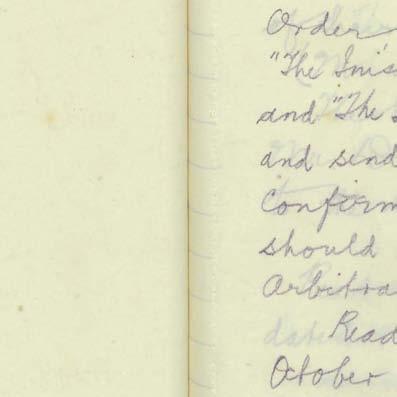 Order
"The
and "The
and send
confirm
should
Arbitra
Read
October